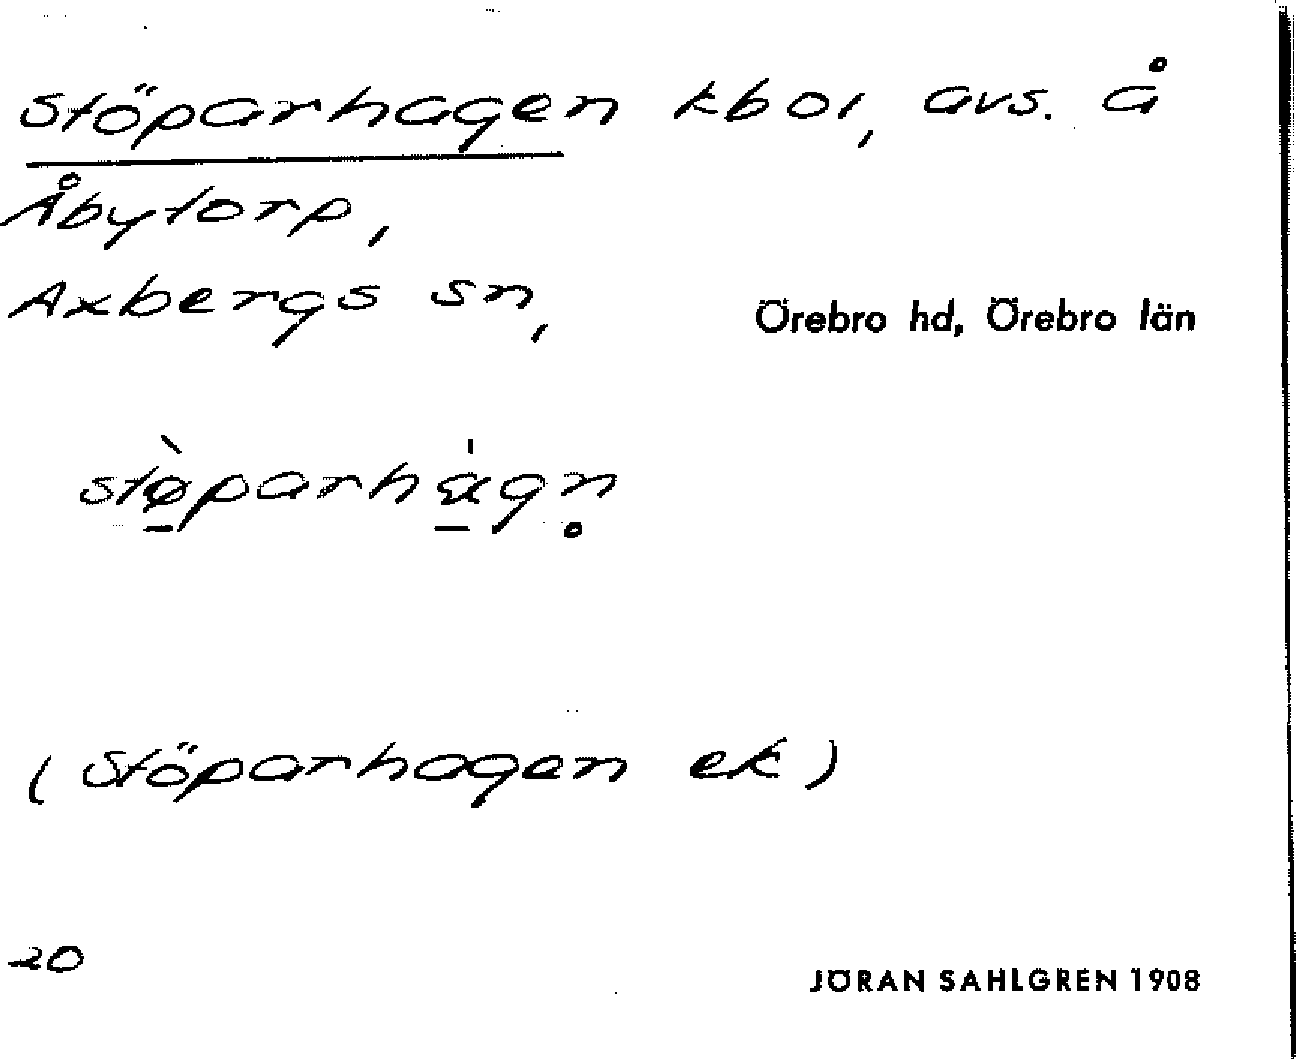 Stöparhagen tbor, avs. å
Åbytorp,
Axbergs sn,
Örebro hd, Örebro län
stø̠̀parhɑ̠̍gn̥
(Stöparhagen ek)
20
JÖRAN SAHLGREN 1908